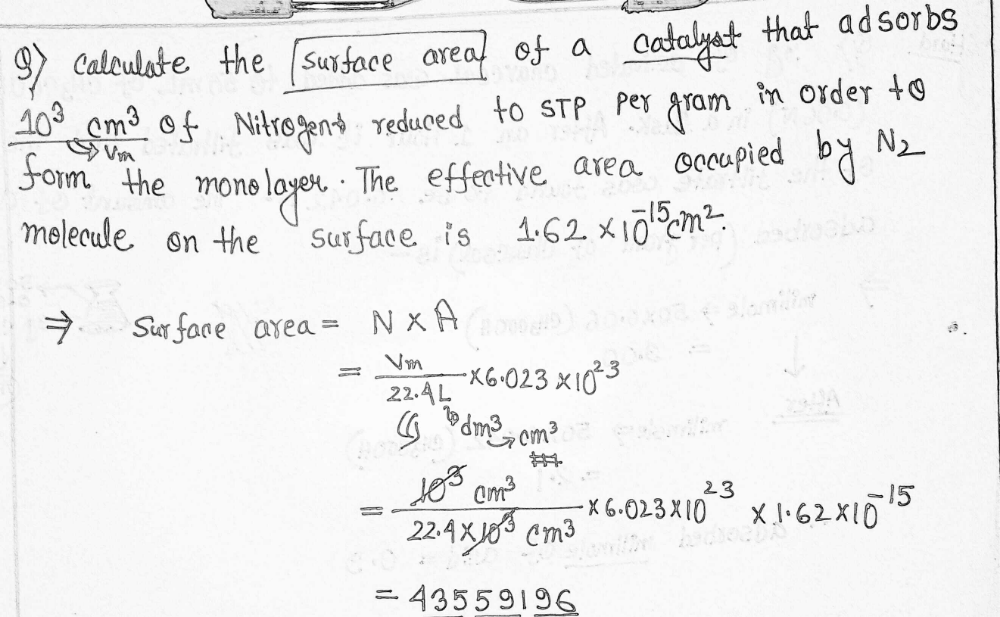 Q) calculate the surface area of a catalyst that adsorbs
10³ cm³ of Nitrogen reduced to STP per gram in order to
→ Vm
form the monolayer. The effective area occupied by N₂
molecule on the surface is 1.62 × 10⁻¹⁵ cm².
⇒ Surface area = N × A
= Vm / 22.4L × 6.023 × 10²³
dm³ → cm³
= 10³ cm³ / 22.4 × 10³ cm³ × 6.023 × 10²³ × 1.62 × 10⁻¹⁵
= 43559196